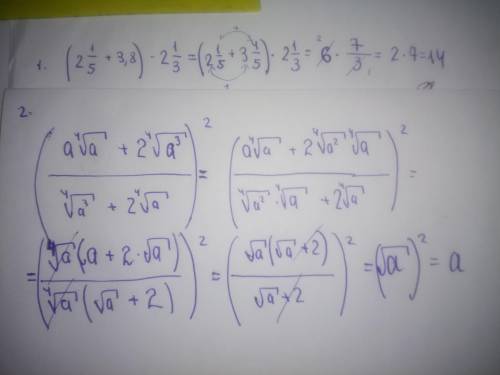 1. (2 1/5 + 3,8) · 2 1/3 = (2 1/5 + 3 4/5) · 2 1/3 = ²6 · 7/3₁ = 2 · 7 = 14
2.
((a ⁴√a + 2 ⁴√a³) / (⁴√a³ + 2 ⁴√a))² = ((a ⁴√a + 2 ⁴√a² ⁴√a) / (⁴√a² · ⁴√a + 2 ⁴√a))² =
= (⁴√a (a + 2 · √a) / ⁴√a (√a + 2))² = (√a (√a + 2) / √a + 2)² = (√a)² = a